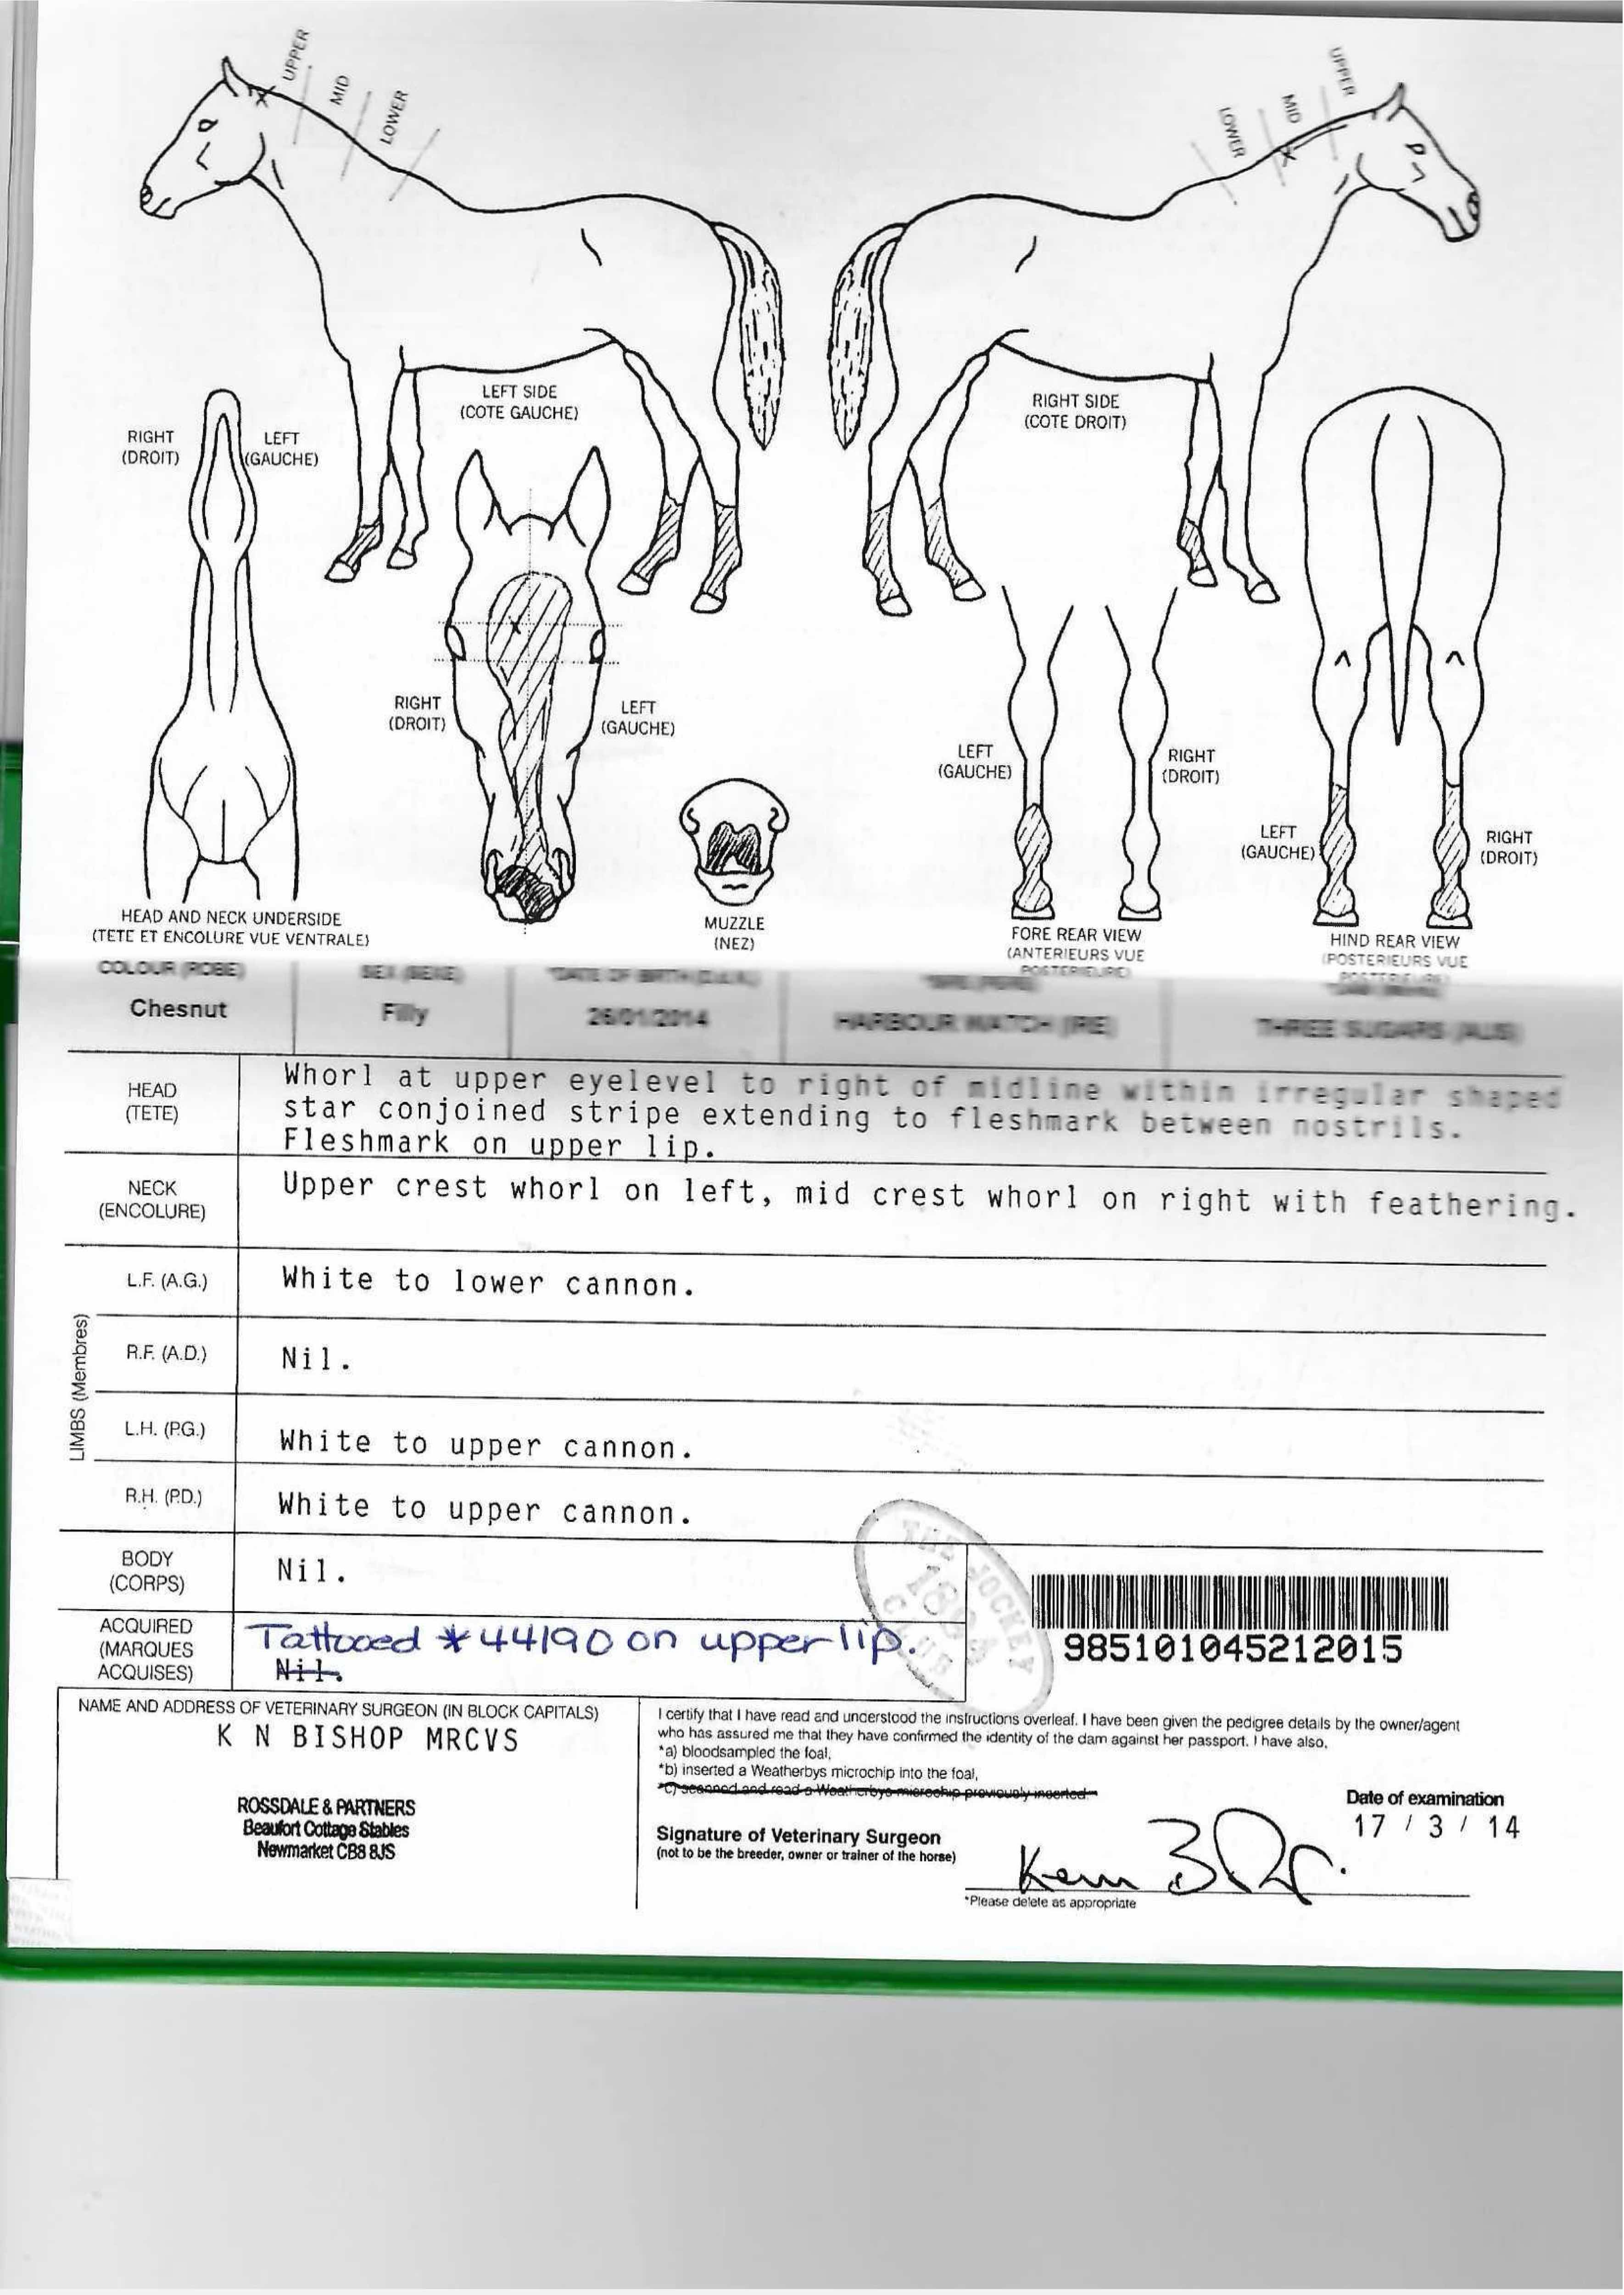 UPPER
MID
LOWER
UPPER
MID
LOWER
LEFT SIDE
(COTE GAUCHE)
RIGHT SIDE
(COTE DROIT)
RIGHT
(DROIT)
LEFT
(GAUCHE)
RIGHT
(DROIT)
LEFT
(GAUCHE)
LEFT
(GAUCHE)
RIGHT
(DROIT)
LEFT
(GAUCHE)
RIGHT
(DROIT)
HEAD AND NECK UNDERSIDE
(TETE ET ENCOLURE VUE VENTRALE)
MUZZLE
(NEZ)
FORE REAR VIEW
(ANTERIEURS VUE
POSTERIEURE)
HIND REAR VIEW
(POSTERIEURS VUE
POSTERIEURE)
COLOUR (ROBE) SEX (SEXE) DATE OF BIRTH
Chesnut Filly 26/01/2014 HARBOUR WATCH (IRE) THREE SUGARS (AUS)
HEAD
(TETE)
Whorl at upper eyelevel to right of midline within irregular shaped
star conjoined stripe extending to fleshmark between nostrils.
Fleshmark on upper lip.
NECK
(ENCOLURE)
Upper crest whorl on left, mid crest whorl on right with feathering.
LIMBS (Membres)
L.F. (A.G.) White to lower cannon.
R.F. (A.D.) Nil.
L.H. (P.G.) White to upper cannon.
R.H. (P.D.) White to upper cannon.
BODY
(CORPS)
Nil.
ACQUIRED
(MARQUES
ACQUISES)
Tattooed *44190 on upper lip.
Nil.
THE JOCKEY
CLUB
985101045212015
NAME AND ADDRESS OF VETERINARY SURGEON (IN BLOCK CAPITALS)
K N BISHOP MRCVS
ROSSDALE & PARTNERS
Beaufort Cottage Stables
Newmarket CB8 8JS
I certify that I have read and understood the instructions overleaf. I have been given the pedigree details by the owner/agent
who has assured me that they have confirmed the identity of the dam against her passport. I have also,
*a) bloodsampled the foal,
*b) inserted a Weatherbys microchip into the foal,
*C) scanned and read a Weatherbys microchip previously inserted
Date of examination
17 / 3 / 14
Signature of Veterinary Surgeon
(not to be the breeder, owner or trainer of the horse)
*Please delete as appropriate